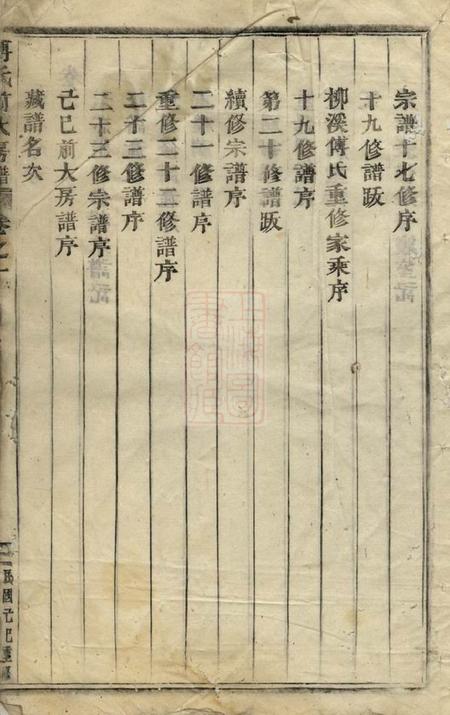 宗譜十七修序
十九修譜跋
柳溪傅氏重修家乘序
十九修譜序
第二十修譜跋
續修宗譜序
二十一修譜序
重修二十二修譜序
二十三修譜序
二十三修宗譜序
己巳前大房譜序
藏譜名次
傅氏前大房譜 卷之一
民國己巳重修